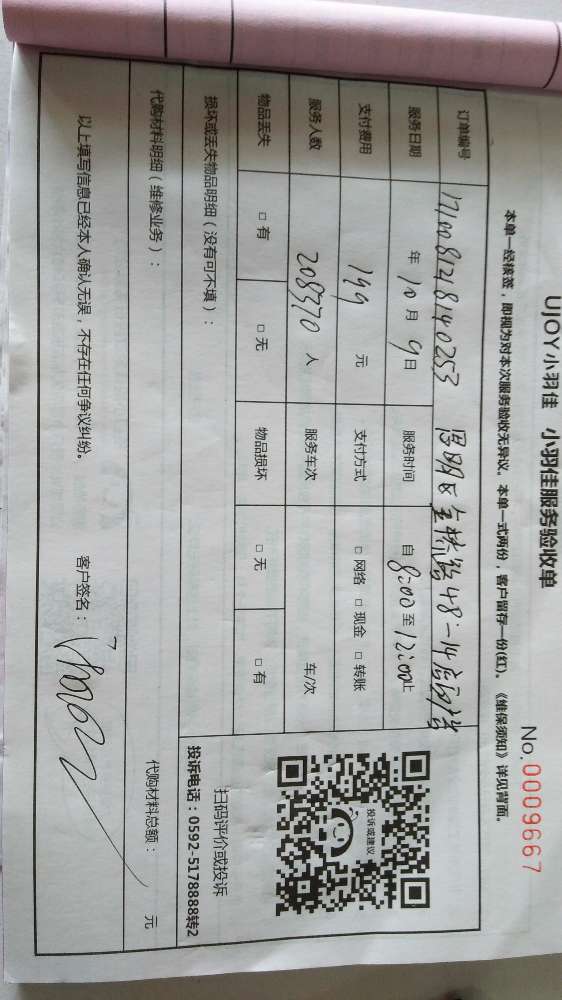 UJOY小羽佳 小羽佳服务验收单
No.0009667
本单一经核签，即视为对本次服务验收无异议。本单一式两份，客户留存一份(红)。《维保须知》详见背面。
订单编号 1710081218140253 思明区金桥路48-14店面
服务日期 年 10 月 9 日 服务时间 自 8:00 至 12:00 止
支付费用 199 元 支付方式 □ 网络 □ 现金 □ 转账
服务人数 208370 人 服务车次 车/次
物品丢失 □ 有 □ 无 物品损坏 □ 无 □ 有
投诉或建议
扫码评价或投诉
投诉电话：0592-5178888转2
损坏或丢失物品明细（没有可不填）：
代购材料明细（维修业务）： 代购材料总额： 元
以上填写信息已经本人确认无误，不存在任何争议纠纷。 客户签名：